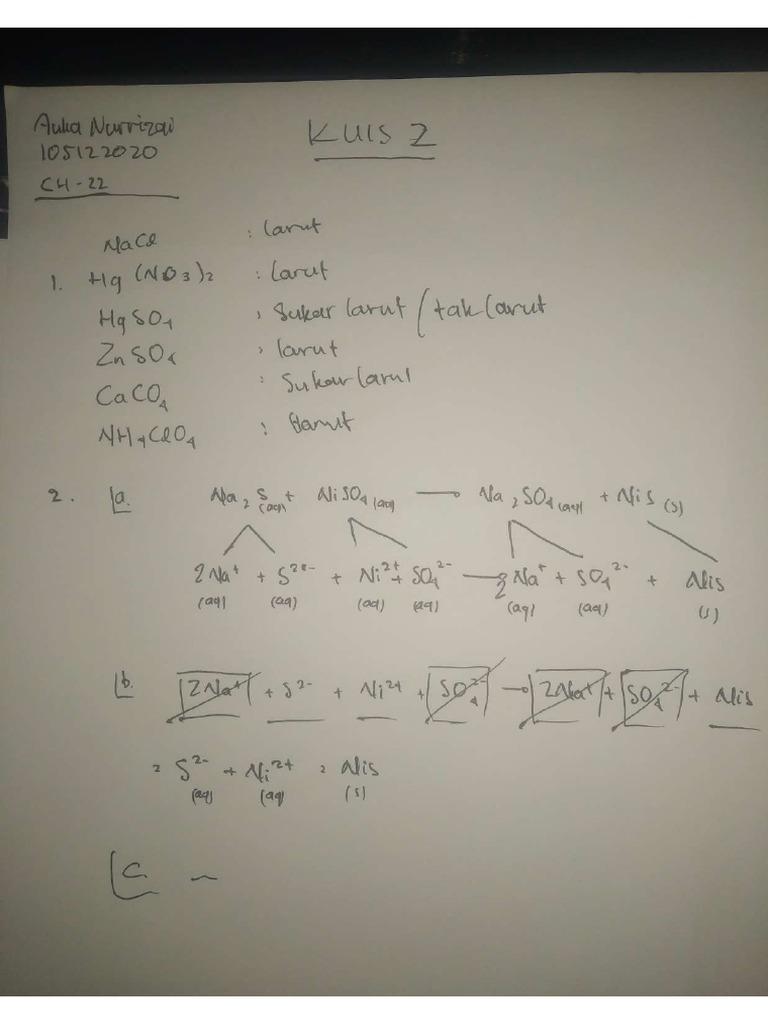 KUIS 2
105122020
CH-22
NaCl : larut
1. Hg(NO3)2 : larut
HgSO4 : Sukar larut / tak larut
ZnSO4 : larut
CaCO4 : Sukar larut
NH4ClO4 : larut
2. a. Na2S(aq) + NiSO4(aq) — Na2SO4(aq) + NiS(s)
2Na+(aq) + S2-(aq) + Ni2+(aq) + SO42-(aq) → 2Na+(aq) + SO42-(aq) + NiS(s)
b. 2Na+ + S2- + Ni2+ + SO42- → 2Na+ + SO42- + NiS
= S2-(aq) + Ni2+(aq) = NiS(s)
c. –